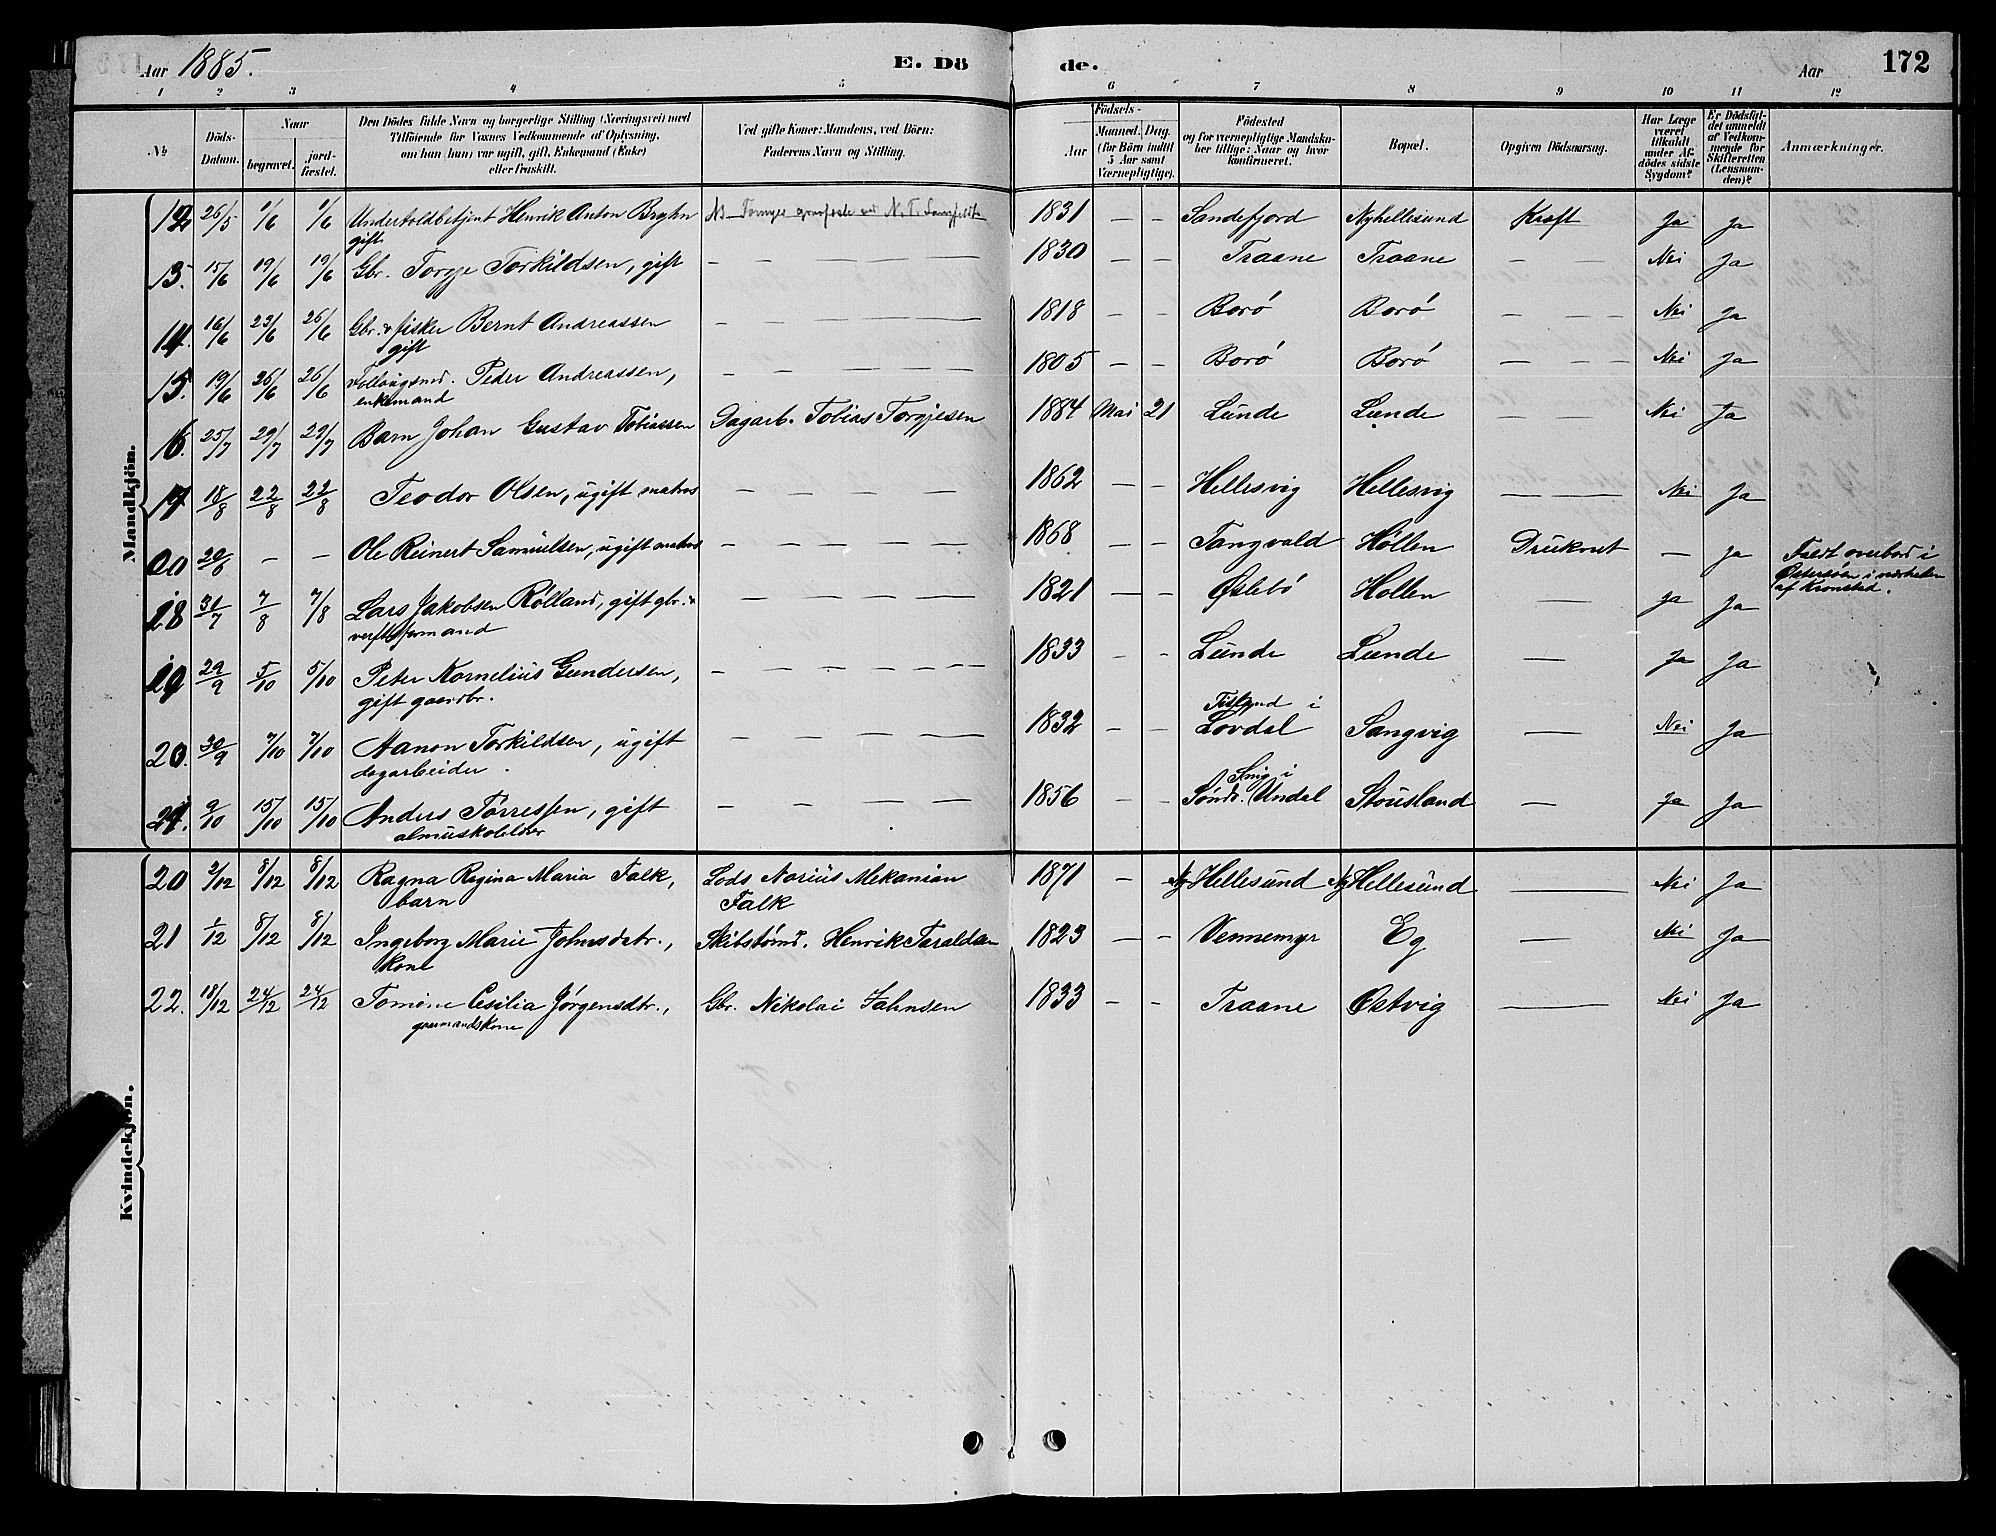 Aar 1885. E. Dö de. Aar 172
1 2 3 4 5 6 7 8 9 10 11 12
No Döds-Datum. Naar begravet. jord-fæstet. Den Dödes fulde Navn og borgerlige Stilling (Næringsvei) med Tilföiende for Voxnes Vedkommende af Oplysning, om han (hun) var ugift, gift, Enkemand (Enke) eller fraskilt. Ved gifte Koner: Mandens, ved Börn: Faderens Navn og Stilling. Födsels- Aar Maaned. Dag. (for Börn indtil 5 Aar samt Værnepligtige). Födested og for værnepligtige Mandska-ber tillige: Naar og hvor konfirmeret. Bopæl. Opgiven Dödsaarsag. Har Læge været tilkaldt under Af-dödes sidste Sygdom? Er Dödsfal-det anmeldt af Vedkom-mende for Skifteretten (Lensman-den)? Anmærkninger.
Mandkjön.
12 26/5 1/6 1/6 Undertoldbetjent Henrik Anton 1831 — — Sandefjord Nyhellesund Kræft Ja Ja
gift
13. 15/6 19/6 19/6 Gbr. Torgje Torkildsen, gift — — — — — 1830 — — Traane Traane — — Nei Ja
14. 16/6 23/6 26/6 Gbr. & fisker Bernt Andreassen — — — — — 1818 — — Borö Borö — — — Nei Ja
gift
15. 19/6 26/6 26/6 Peder Andreassen, — — — — — 1805 — — Borö Borö — — — Nei Ja
enkemand
16. 25/7 29/7 29/7 Barn Johan Gustav Tobiassen Dagarb. Tobias Torgjesen 1884 Mai 21 Lunde Lunde — — Nei Ja
17 18/8 22/8 22/8 Teodor Olsen, ugift matros — — — — — 1862 — — Hellesvig Hellesvig — — — Nei Ja
00 — — Ole Reinert Samuelsen, ugift matros — — — — — 1868 — — Tangvald Höllen Druknet — ja Faldt overbord i
Östersöen i nærheden
af Kronsted.
18 31/7 7/8 7/8 Lars Jakobsen Rölland, gift gbr. & — — — — — 1821 — — Öslebö Hollen — ja Ja
19 29/9 5/10 5/10 Peter Kornelius Gundersen, — — — — — 1833 — — Lunde Lunde — Ja Ja
gift gaardbr.
20. 30/9 7/10 7/10 Aanon Torkildsen, ugift — — — — — 1832 — — i
Lovdal Sangvig — Nei Ja
dagarbeider.
21. 9/10 15/10 15/10 Anders Törressen, gift — — — — 1856 — — i
Söndr. Undal Stousland — Ja Ja
Kvindekjön.
20 2/12 8/12 8/12 Ragna Regina Maria Falk, Lods Narius Mekanian 1871 — Ny Hellesund Ny Hellesund — Nei Ja
barn Falk
21 1/12 8/12 8/12 Ingeborg Marie Johnsdatr., Skibstömd. Henrik Taraldsen 1823 — — Vennemyr Eg — Nei Ja
kone
22. 18/12 24/12 24/12 Tomine Cesilia Jörgensdtr., Gbr. Nikolai Jahnsen 1833 — — Traane Östvig — Nei Ja
gaarmandskone